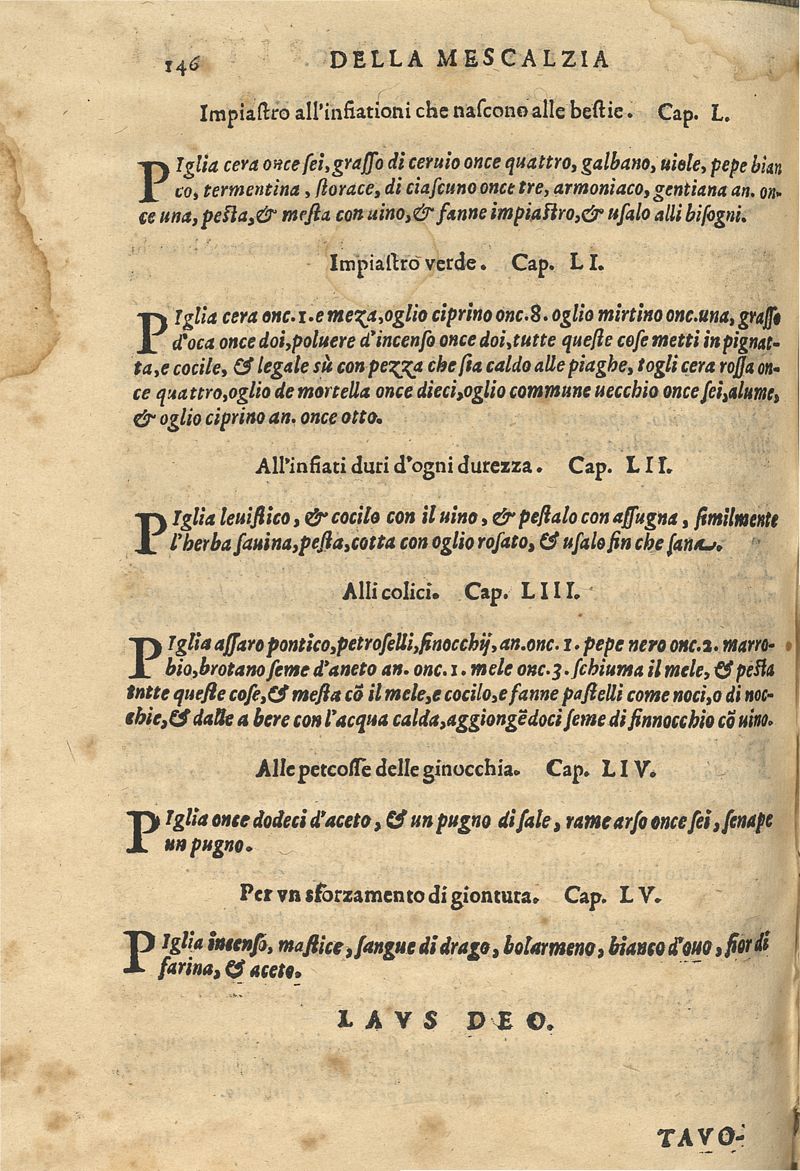 146 DELLA MESCALZIA
Impiaſtro all'infiationi che naſcono alle beſtie. Cap. L.
PIglia cera once ſei, graſſo di ceruio once quattro, galbano, uiole, pepe bian
co, termentina, ſtorace, di ciaſcuno once tre, armoniaco, gentiana an. on-
ce una, peſta, & meſta con uino, & fanne impiaſtro, & uſalo alli biſogni.
Impiaſtro verde. Cap. LI.
PIglia cera onc. 1. e meza, oglio ciprino onc. 8. oglio mirtino onc. una, graſſo
d'oca once doi, poluere d'incenſo once doi, tutte queſte coſe metti in pignat-
ta, e cocile, & legale sù con pezza che ſia caldo alle piaghe, togli cera roſſa on-
ce quattro, oglio de mortella once dieci, oglio commune uecchio once ſei, alume,
& oglio ciprino an. once otto.
All'infiati duri d'ogni durezza. Cap. LII.
PIglia leuiſtico, & cocilo con il uino, & peſtalo con aſſugna, ſimilmente
l'herba ſauina, peſta, cotta con oglio roſato, & uſalo fin che ſana.
Alli colici. Cap. LIII.
PIglia aſſaro pontico, petroſelli, finocchij, an. onc. 1. pepe nero onc. 2. marro-
bio, brotano ſeme d'aneto an. onc. 1. mele onc. 3. ſchiuma il mele, & peſta
tutte queſte coſe, & meſta cõ il mele, e cocilo, e fanne paſtelli come noci, o di noc-
chie, & dalle a bere con l'acqua calda, aggiongẽdoci ſeme di finnocchio cõ uino.
Alle percoſſe delle ginocchia. Cap. LIV.
PIglia once dodeci d'aceto, & un pugno di ſale, rame arſo once ſei, ſenape
un pugno.
Per vn sforzamento di giontura. Cap. LV.
PIglia incenſo, maſtice, ſangue di drago, bolarmeno, bianco d'ouo, fior di
farina, & aceto.
LAVS DEO.
TAVO-